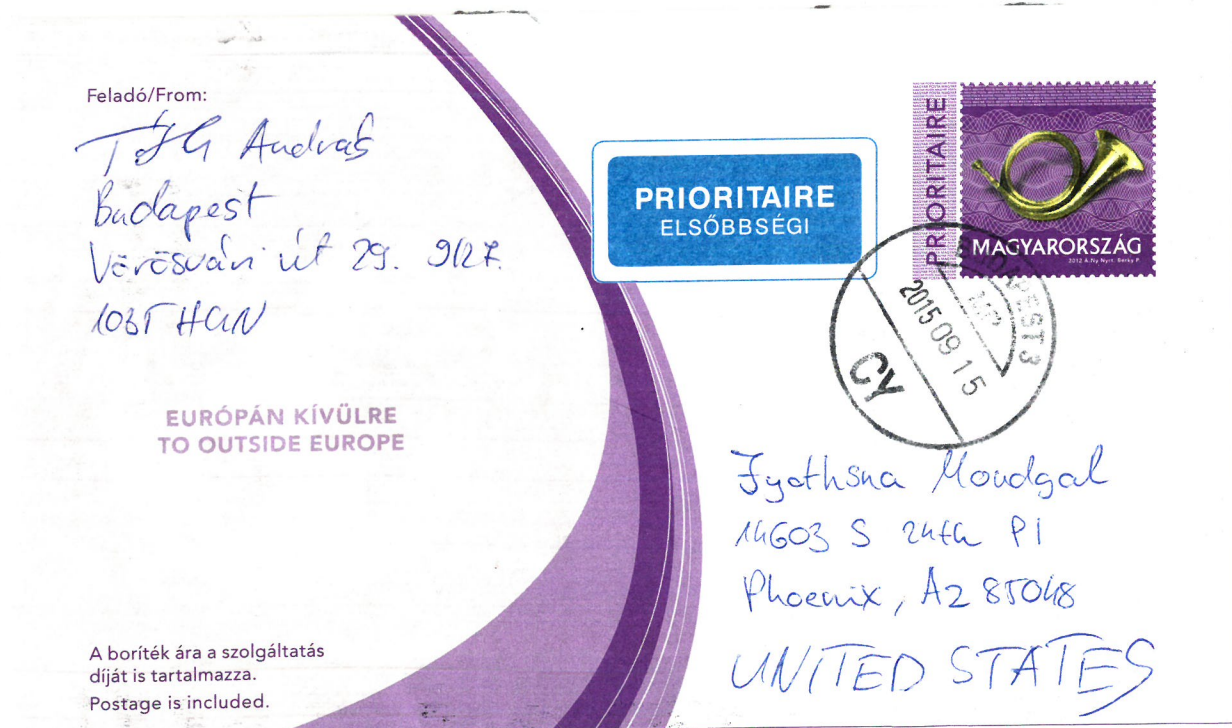 Feladó/From:
Tóth András
Budapest
Vörösvári út 29. 9/27.
1035 HUN
EURÓPÁN KÍVÜLRE
TO OUTSIDE EUROPE
A boríték ára a szolgáltatás
díját is tartalmazza.
Postage is included.
PRIORITAIRE
ELSŐBBSÉGI
PRIORITAIRE
MAGYARORSZÁG
2012 Á.Ny Nyrt. Berky P.
BUDAPEST 3
2015 09 15
CY
Jyothsna Moudgal
14603 S 24th Pl
Phoenix, AZ 85048
UNITED STATES